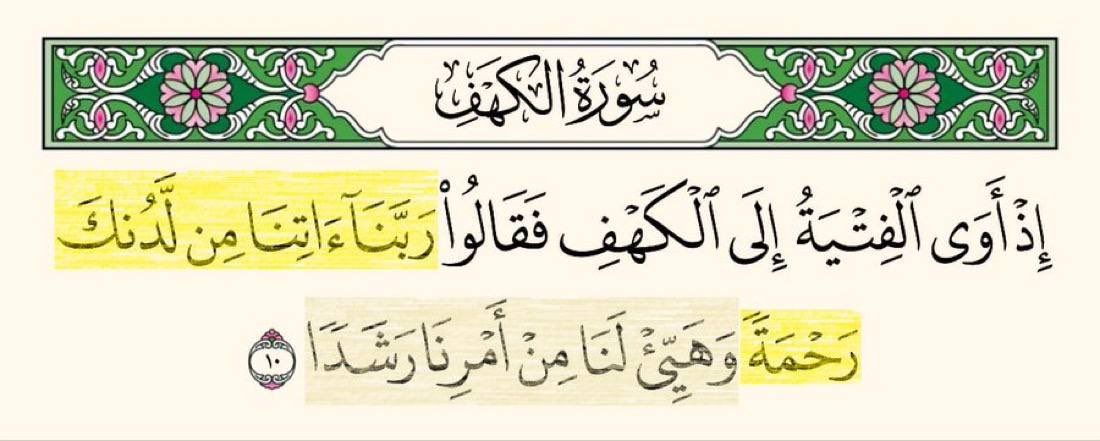 سُورَةُ الكَهۡفِ
إِذۡ أَوَى ٱلۡفِتۡيَةُ إِلَى ٱلۡكَهۡفِ فَقَالُواْ رَبَّنَآ ءَاتِنَا مِن لَّدُنكَ
رَحۡمَةٗ وَهَيِّئۡ لَنَا مِنۡ أَمۡرِنَا رَشَدٗا ١٠